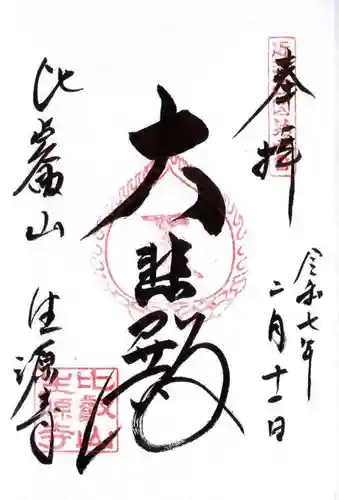 奉拝
令和七年
二月十一日
大悲殿
比叡山
生源寺
比叡山
生源寺